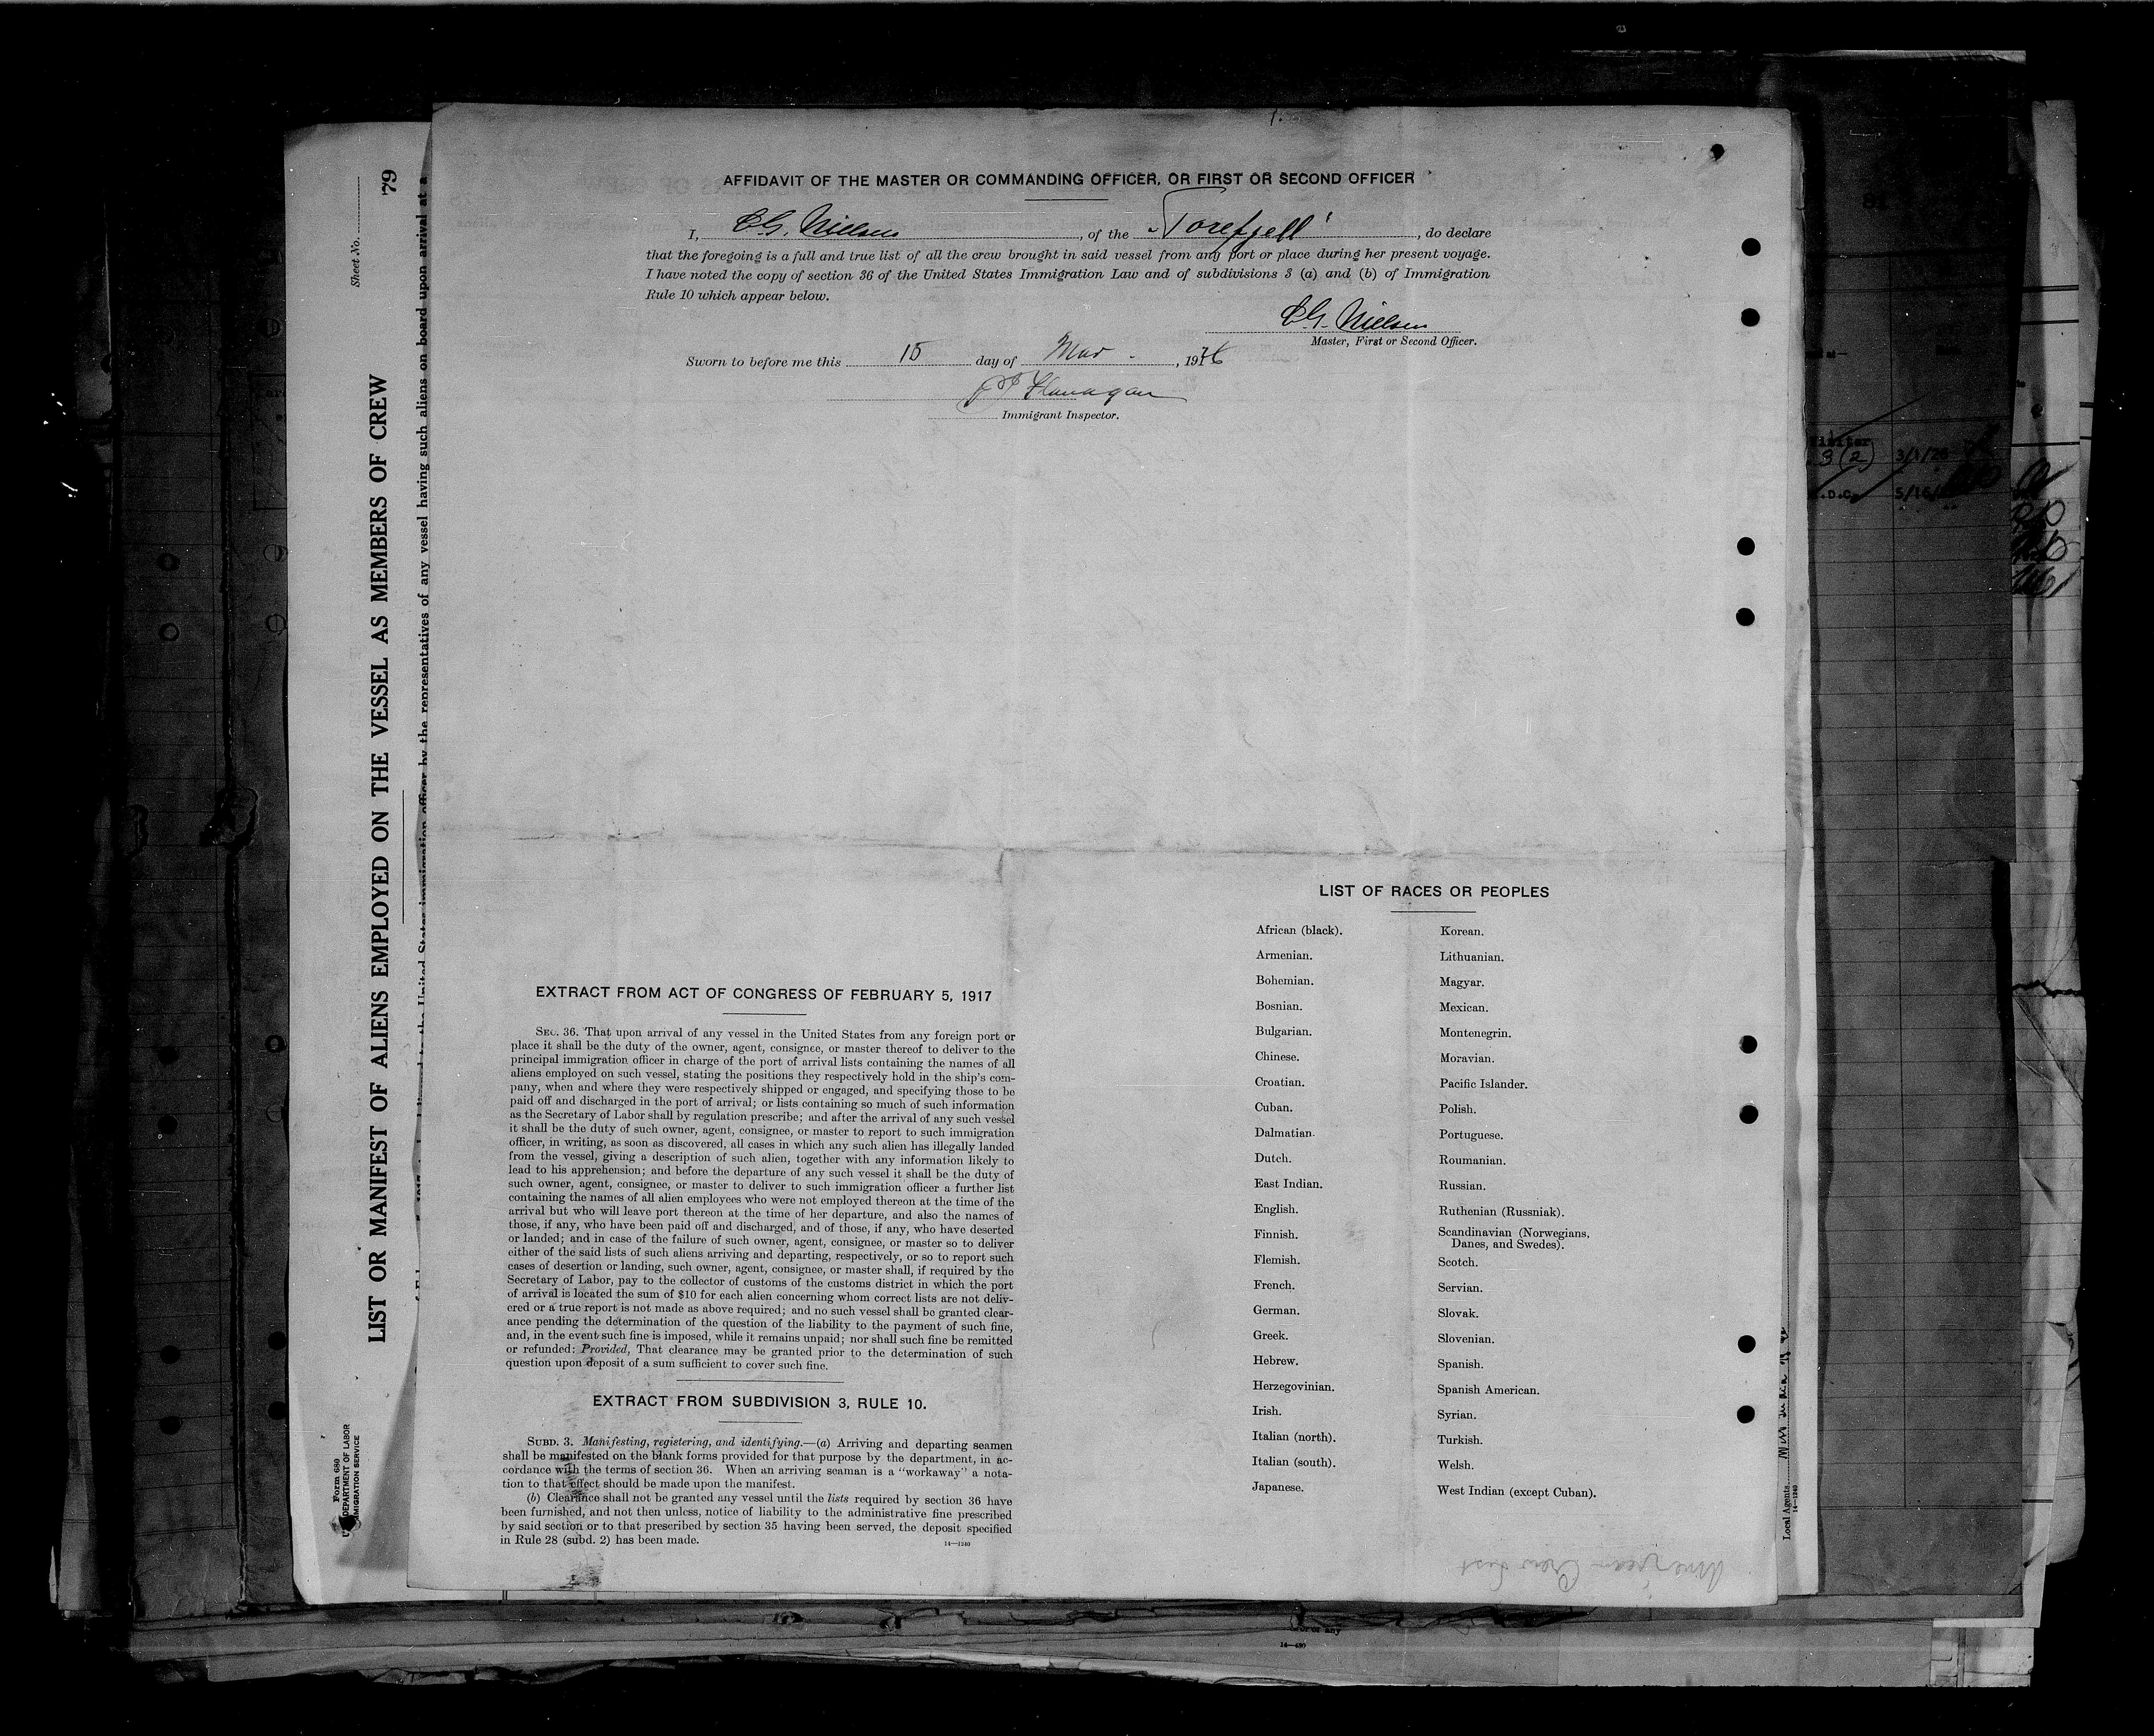 AFFIDAVIT OF THE MASTER OR COMMANDING OFFICER, OR FIRST OR SECOND OFFICER
I, C.G. Nielsen, of the "Torefjell", do declare
that the foregoing is a full and true list of all the crew brought in said vessel from any port or place during her present voyage.
I have noted the copy of section 36 of the United States Immigration Law and of subdivisions 3 (a) and (b) of Immigration
Rule 10 which appear below.
C.G. Nielsen
Master, First or Second Officer.
Sworn to before me this 15 day of Mar., 1926
Flanagan
Immigrant Inspector.
EXTRACT FROM ACT OF CONGRESS OF FEBRUARY 5, 1917
SEC. 36. That upon arrival of any vessel in the United States from any foreign port or
place it shall be the duty of the owner, agent, consignee, or master thereof to deliver to the
principal immigration officer in charge of the port of arrival lists containing the names of all
aliens employed on such vessel, stating the positions they respectively hold in the ship's com-
pany, when and where they were respectively shipped or engaged, and specifying those to be
paid off and discharged in the port of arrival; or lists containing so much of such information
as the Secretary of Labor shall by regulation prescribe; and after the arrival of any such vessel
it shall be the duty of such owner, agent, consignee, or master to report to such immigration
officer, in writing, as soon as discovered, all cases in which any such alien has illegally landed
from the vessel, giving a description of such alien, together with any information likely to
lead to his apprehension; and before the departure of any such vessel it shall be the duty of
such owner, agent, consignee, or master to deliver to such immigration officer a further list
containing the names of all alien employees who were not employed thereon at the time of the
arrival but who will leave port thereon at the time of her departure, and also the names of
those, if any, who have been paid off and discharged, and of those, if any, who have deserted
or landed; and in case of the failure of such owner, agent, consignee, or master so to deliver
either of the said lists of such aliens arriving and departing, respectively, or so to report such
cases of desertion or landing, such owner, agent, consignee, or master shall, if required by the
Secretary of Labor, pay to the collector of customs of the customs district in which the port
of arrival is located the sum of $10 for each alien concerning whom correct lists are not deliv-
ered or a true report is not made as above required; and no such vessel shall be granted clear-
ance pending the determination of the question of the liability to the payment of such fine,
and, in the event such fine is imposed, while it remains unpaid; nor shall such fine be remitted
or refunded: Provided, That clearance may be granted prior to the determination of such
question upon deposit of a sum sufficient to cover such fine.
EXTRACT FROM SUBDIVISION 3, RULE 10.
SUBD. 3. Manifesting, registering, and identifying.—(a) Arriving and departing seamen
shall be manifested on the blank forms provided for that purpose by the department, in ac-
cordance with the terms of section 36. When an arriving seaman is a "workaway" a nota-
tion to that effect should be made upon the manifest.
(b) Clearance shall not be granted any vessel until the lists required by section 36 have
been furnished, and not then unless, notice of liability to the administrative fine prescribed
by said section or to that prescribed by section 35 having been served, the deposit specified
in Rule 28 (subd. 2) has been made.
14—1240
LIST OF RACES OR PEOPLES
African (black).
Armenian.
Bohemian.
Bosnian.
Bulgarian.
Chinese.
Croatian.
Cuban.
Dalmatian.
Dutch.
East Indian.
English.
Finnish.
Flemish.
French.
German.
Greek.
Hebrew.
Herzegovinian.
Irish.
Italian (north).
Italian (south).
Japanese.
Korean.
Lithuanian.
Magyar.
Mexican.
Montenegrin.
Moravian.
Pacific Islander.
Polish.
Portuguese.
Roumanian.
Russian.
Ruthenian (Russniak).
Scandinavian (Norwegians,
Danes, and Swedes).
Scotch.
Servian.
Slovak.
Slovenian.
Spanish.
Spanish American.
Syrian.
Turkish.
Welsh.
West Indian (except Cuban).
American Crew List
Sheet No.
79
LIST OR MANIFEST OF ALIENS EMPLOYED ON THE VESSEL AS MEMBERS OF CREW
officer by the representatives of any vessel having such aliens on board upon arrival at a
Form 680
U. S. DEPARTMENT OF LABOR
IMMIGRATION SERVICE
Local Agents
14—1240
3(2)
3/1/26
5/16/
14—480